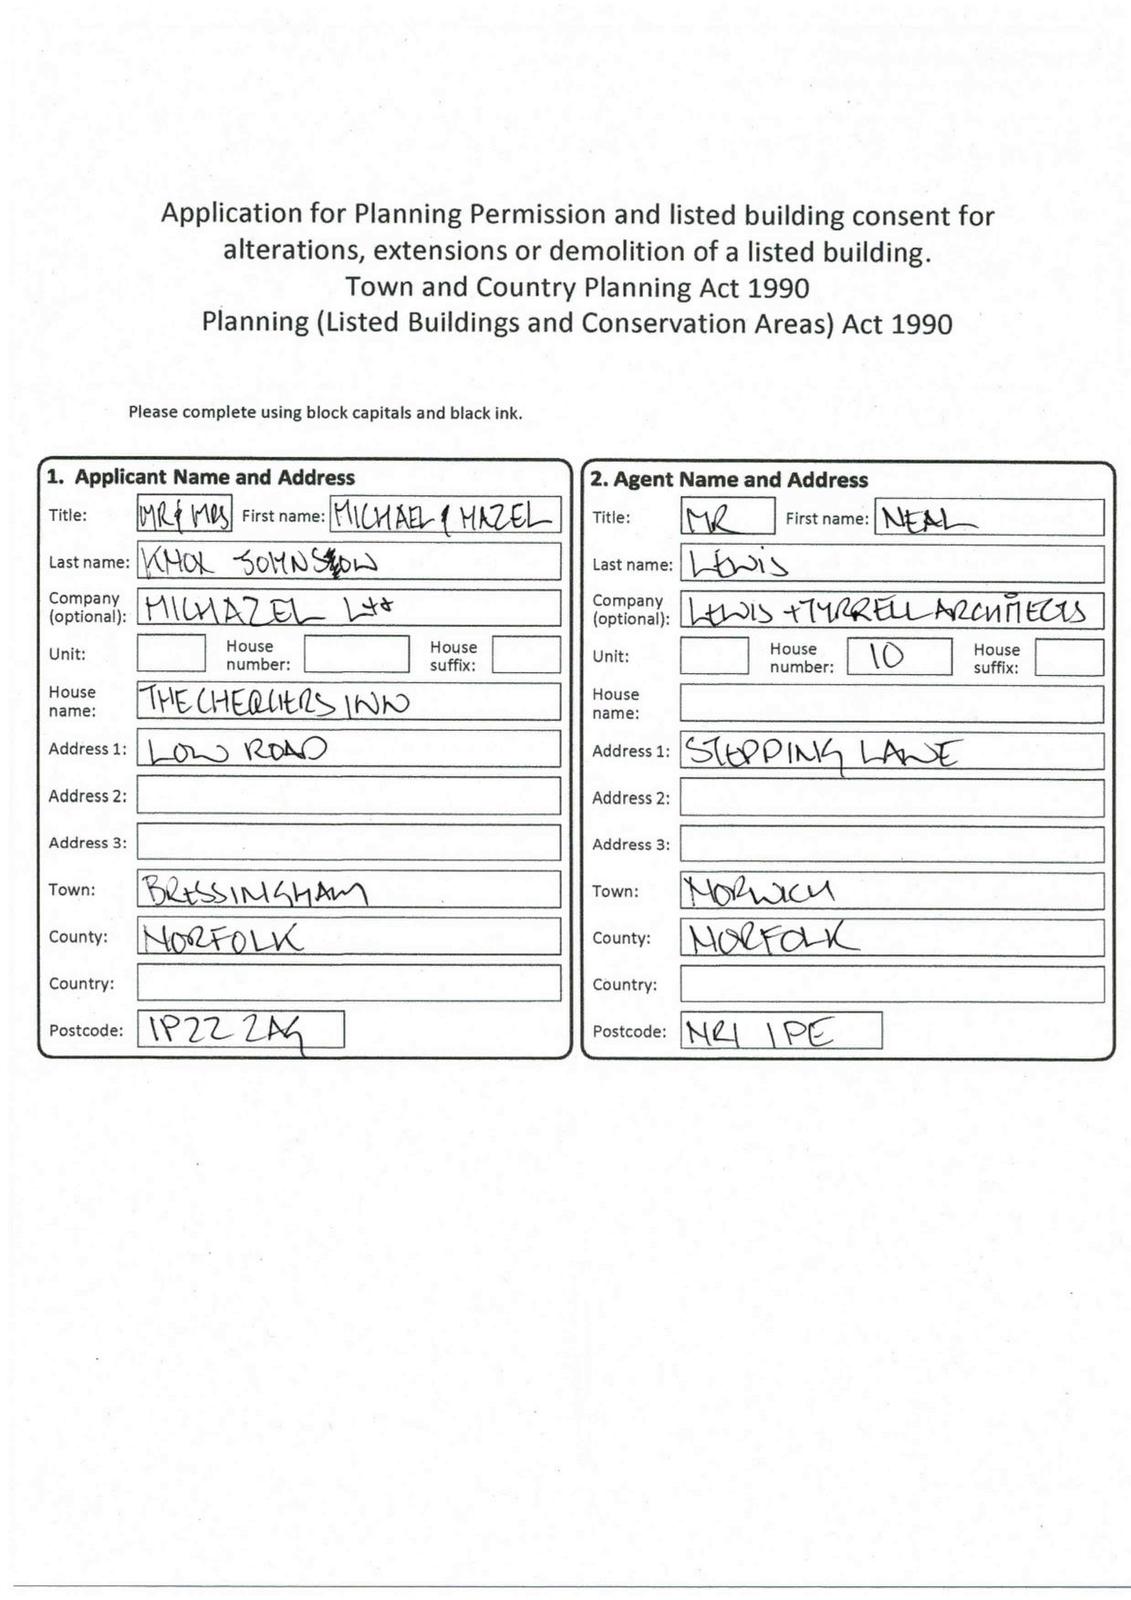 Application for Planning Permission and listed building consent for
alterations, extensions or demolition of a listed building.
Town and Country Planning Act 1990
Planning (Listed Buildings and Conservation Areas) Act 1990
Please complete using block capitals and black ink.
1. Applicant Name and Address
Title: MR & MRS First name: MICHAEL & HAZEL
Last name: KNOX JOHNSTON
Company (optional): MICHAZEL Ltd
Unit: House number: House suffix:
House name: THE CHEQUERS INN
Address 1: LOW ROAD
Address 2:
Address 3:
Town: BRESSINGHAM
County: NORFOLK
Country:
Postcode: IP22 2AG
2. Agent Name and Address
Title: MR First name: NEAL
Last name: LEWIS
Company (optional): LEWIS + TYRRELL ARCHITECTS
Unit: House number: 10 House suffix:
House name:
Address 1: STEPPING LANE
Address 2:
Address 3:
Town: NORWICH
County: NORFOLK
Country:
Postcode: NR1 1PE